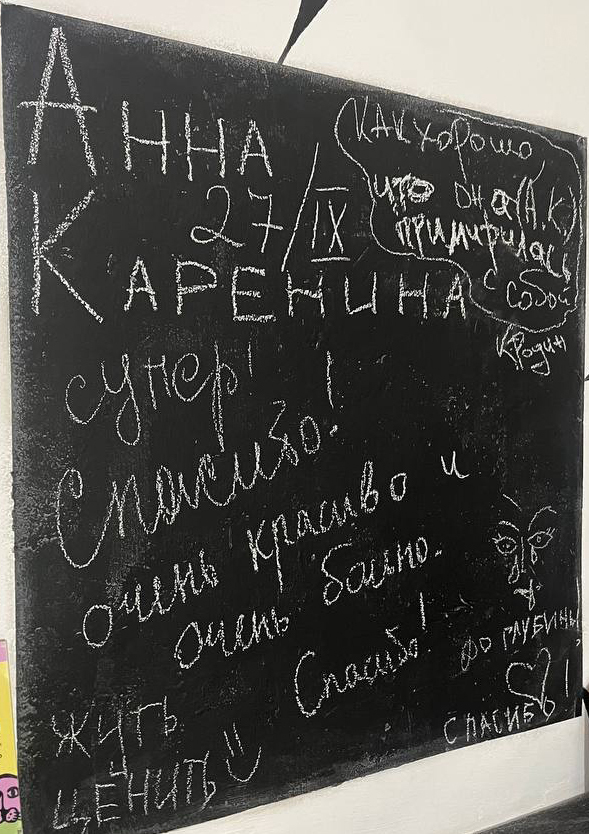 Анна
27/IX
Каренина
Как хорошо,
что она (А.К.)
примирилась
с собой
супер!
Спасибо!
очень красиво и
очень больно.
Спасибо!
до глубины!
Спасиб
жить
ценить